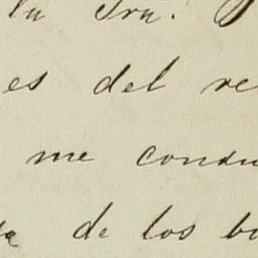 la Sra.
es del re
me condu
de los bu